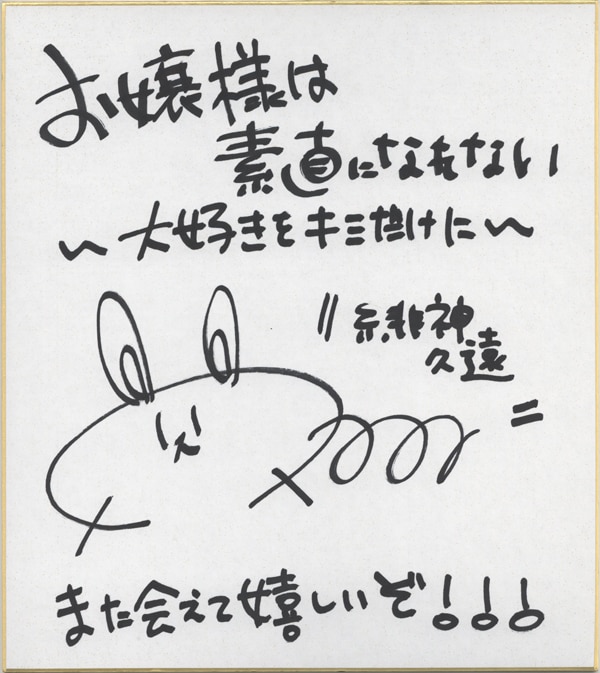 お嬢様は
素直になれない
〜大好きをキミだけに〜
〃緋神
久遠〃
また会えて嬉しいぞ!!!